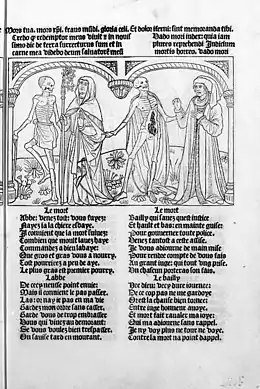 Mors tua. mors xpi. fraus mūdi. gloria celi. Et dolor iferni: sint memoranda tibi.
Credo q̄ redemptor meus viuit ⁊ in nouis
simo die de terra surrecturus sum et in
carne mea videbo deum saluatorē meū
Vado mori iudex: quia iam
plures reprehendi Iudicium
mortis horreo. vado mori
Le mort
Abbe: venez tost: vous fuyez:
Nayez ia la chiere esbaye.
Il conuient que la mort suiuez:
Combien que moult lauez haye
Commandez a dieu labaye:
Que gros et gras vous a nourry.
Tost pourrirez a peu de aye.
Le plus gras est premier pourry.
Labbe
De cecy neusse point enuie:
Mais il conuient le pas passer.
Las: or nay ie pas en ma vie
Garde mon ordre sans casser.
Garde vous de trop embrasser
Vous qui viuez au demorant:
Se vous voulez bien trespasser.
On sauise tard en mourant.
Le mort
Bailly qui sauez quest iustice
Et hault et bas: en mainte guise:
Pour gouuerner toute police.
Venez tantost a ceste assise.
Ie vous adiourne de main mise
Pour rendre compte de vous fais
Au grant iuge: qui tout vng prise.
Vn chascun portera son fais.
Le bailly
Hee dieu: vecy dure iournee:
De ce cop pas ne me gardoye
Or est la chanse bien tornee:
Entre iuges honneur auoye.
Et mort fait raualer ma ioye:
Qui ma adiourne sans rappel.
Ie ny voy plus ne tour ne voye.
Contre la mort na point dappel.